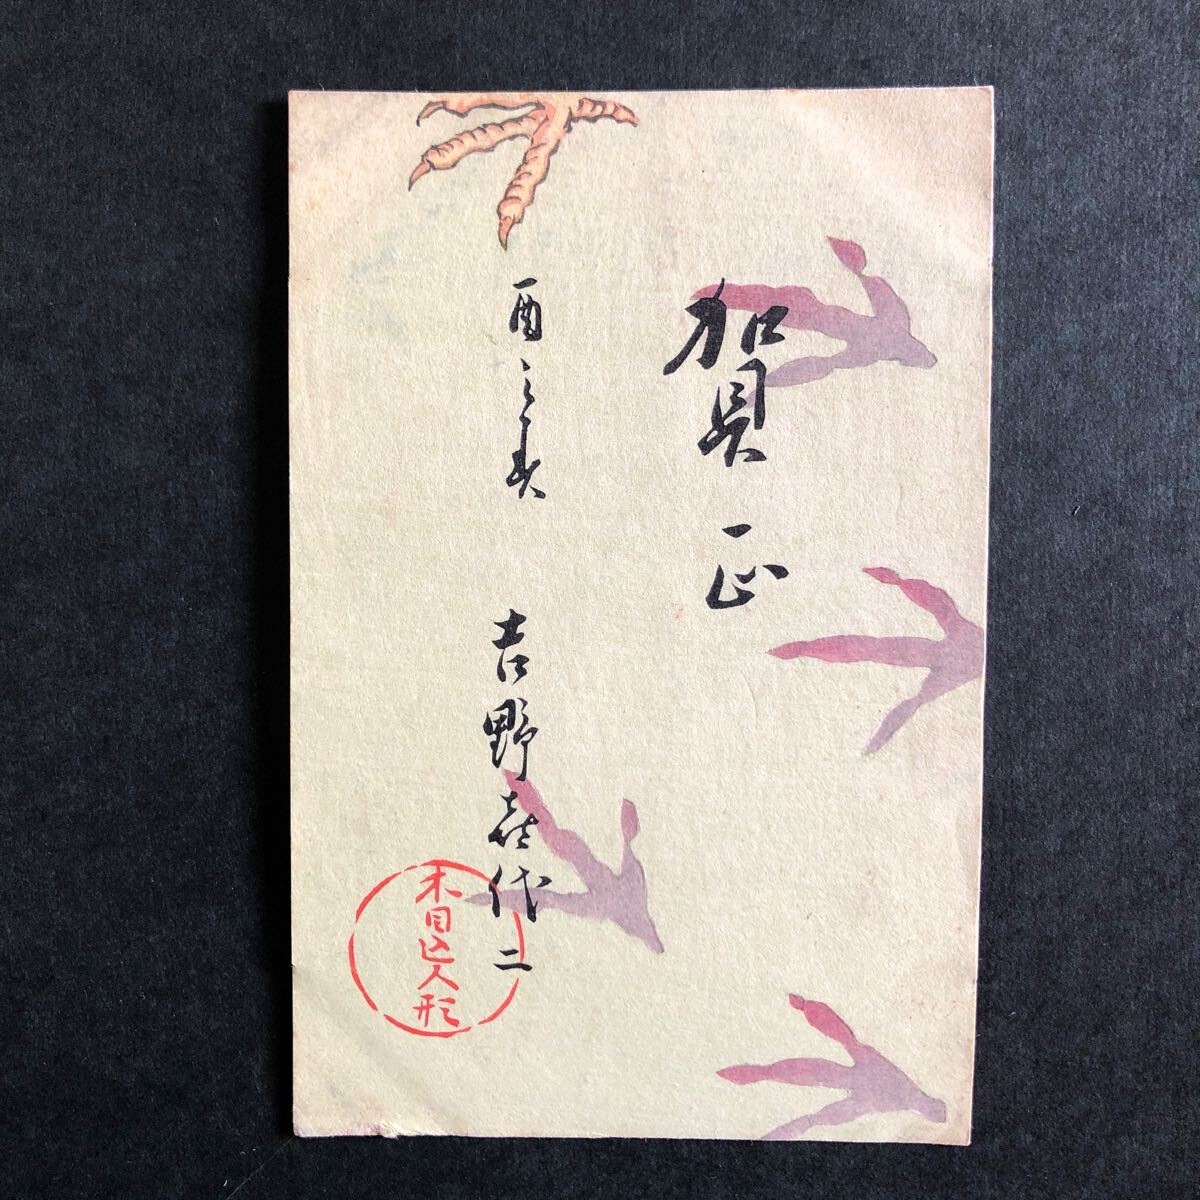 賀正
酉之春
吉野喜代二
木目込人形